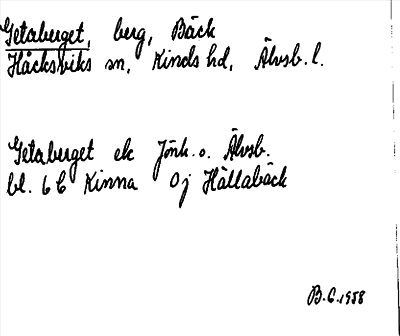 Getaberget, berg, Bäck
Håcksviks sn, Kinds hd, Älvsb. l.
Getaberget ek Jönk. o. Älvsb.
bl. 6 C Kinna 0j Hällabäck
B.C. 1958